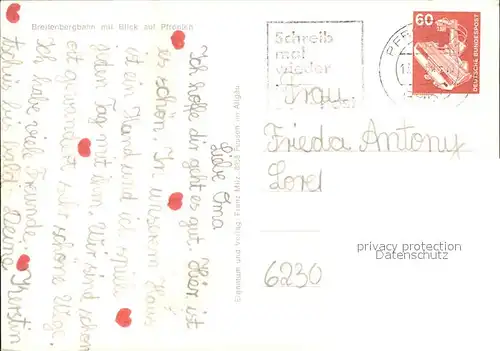 Breitenbergbahn mit Blick auf Pfronten
Liebe Oma
Ich hoffe dir geht es gut. Hier ist
es schön. In unserem Haus
ist ein Hund und ich spiele
jeden Tag mit ihm. Wir sind schon
oft gewandert sehr schöne Wege.
Ich habe viele Freunde.
tschüs bis bald Deine Kerstin
Eigentum und Verlag: Franz Milz, 8958 Füssen im Allgäu
Schreib
mal
wieder
60
DEUTSCHE BUNDESPOST
PFR
Frau
Frieda Antony
Lorel
6230
privacy protection
Datenschutz